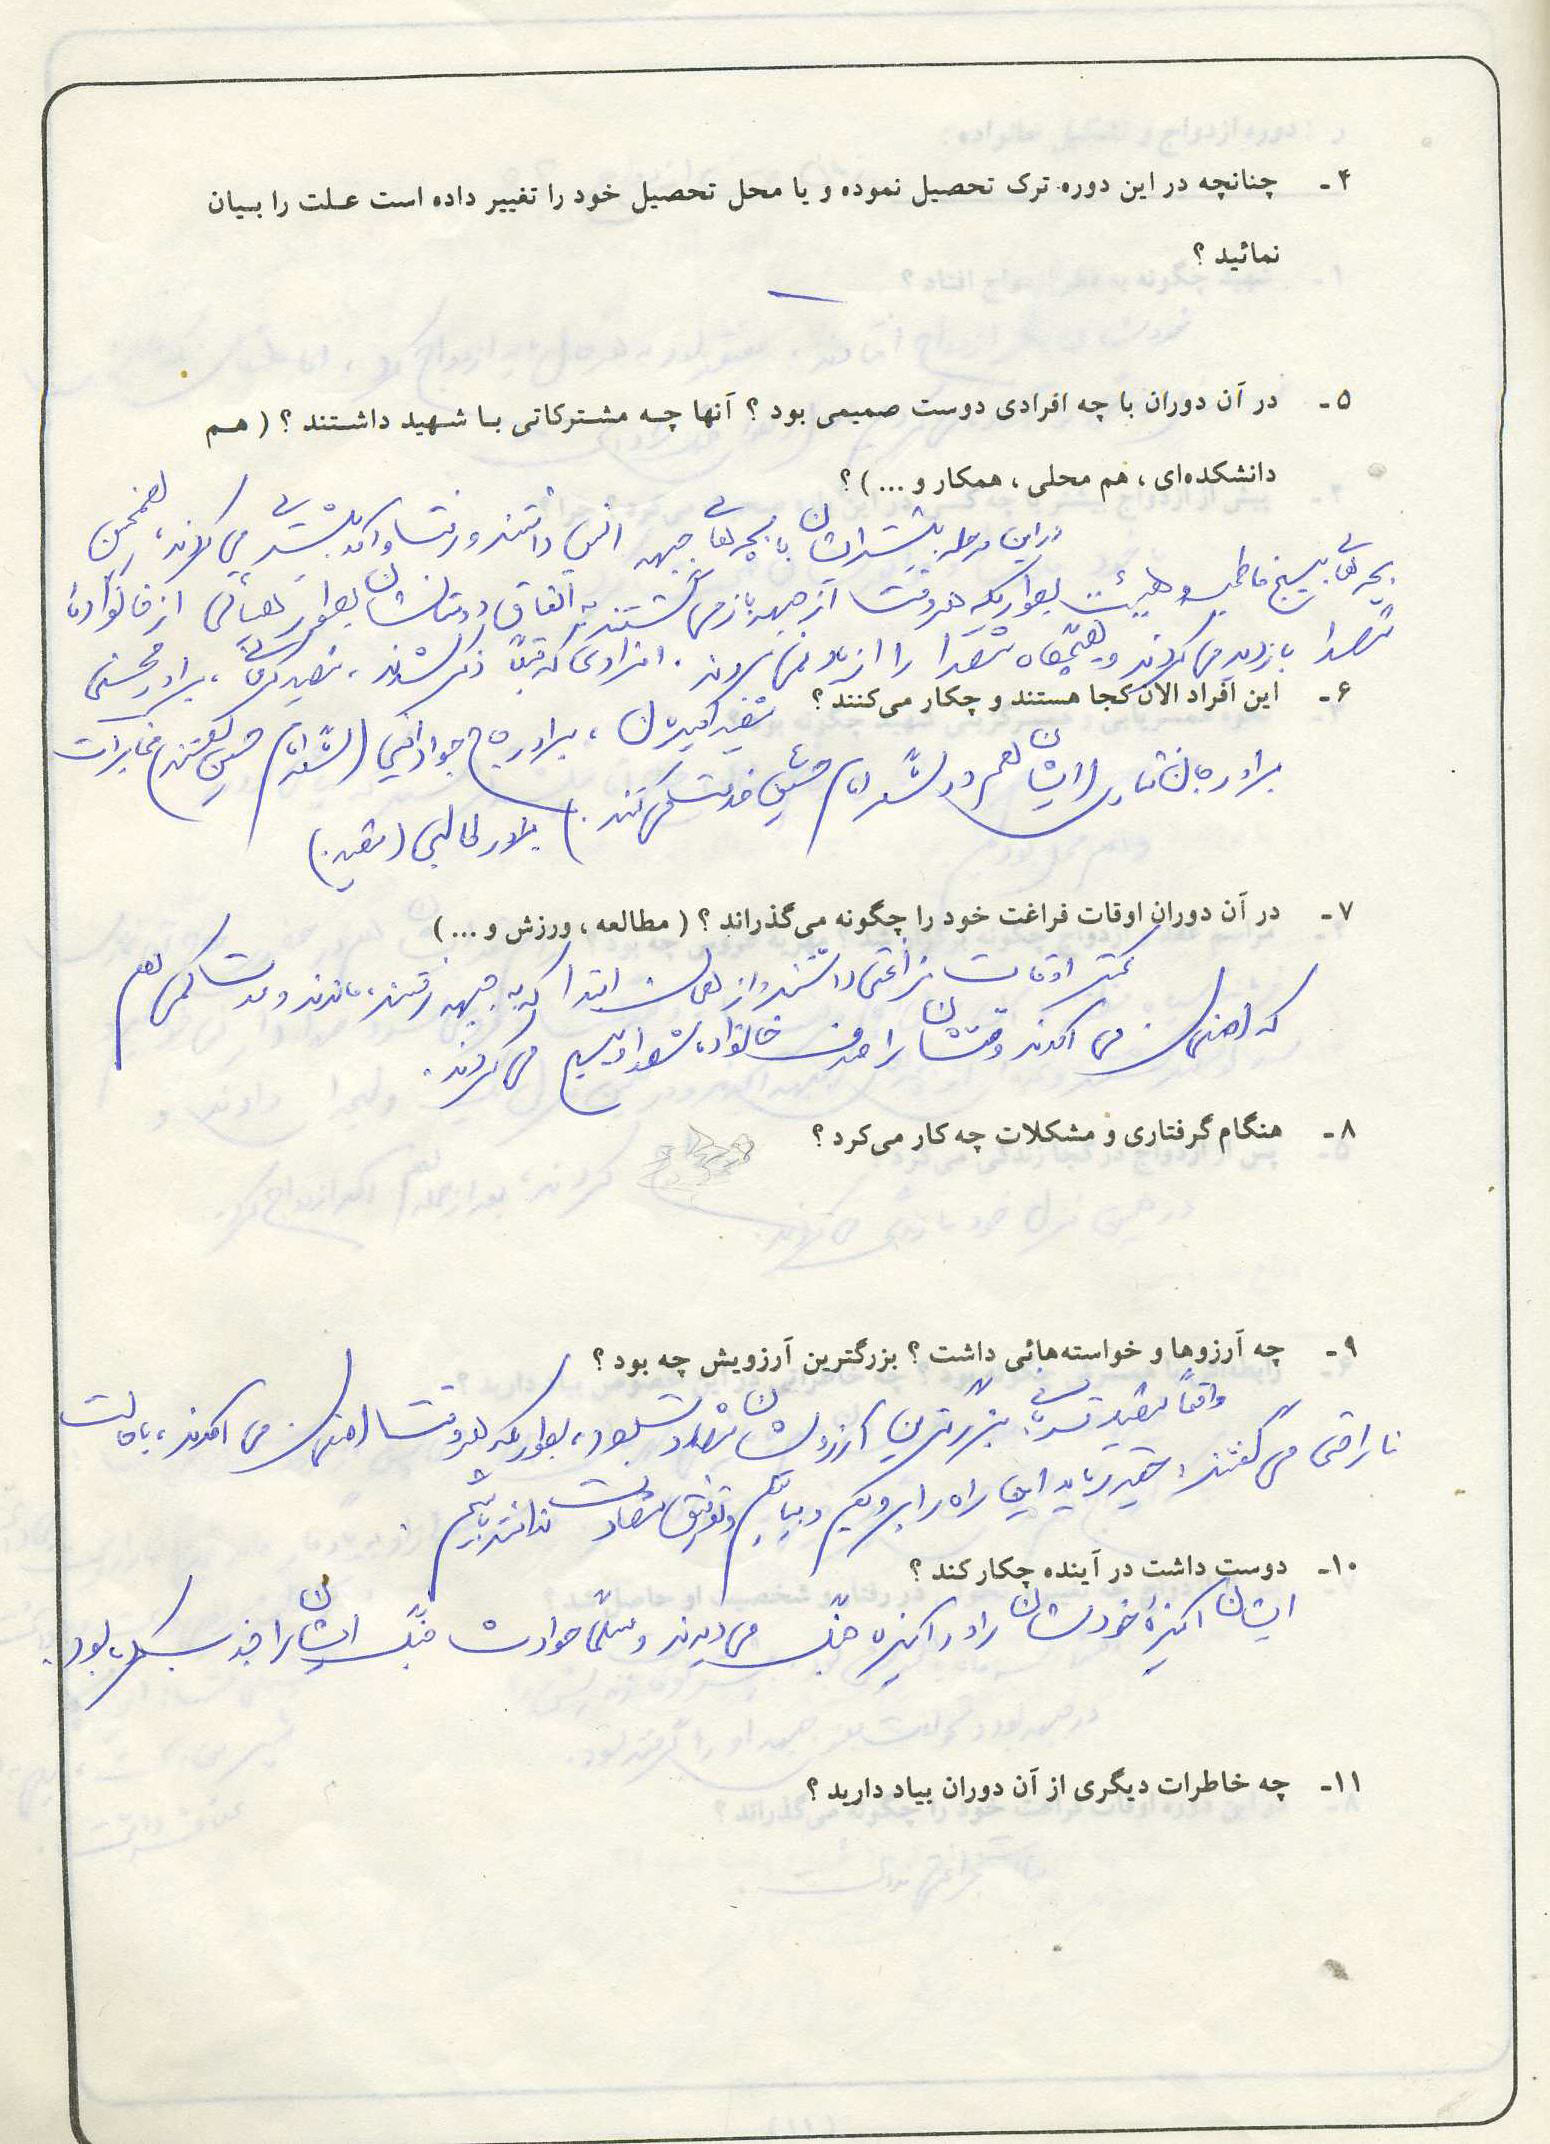 ۴- چنانچه در این دوره ترک تحصیل نموده و یا محل تحصیل خود را تغییر داده است علت را بیان
نمائید ؟
—
۵- در آن دوران با چه افرادی دوست صمیمی بود ؟ آنها چه مشترکاتی با شهید داشتند ؟ ( هم
دانشکده‌ای ، هم محلی ، همکار و ... ) ؟
در این مرحله بیشتر ایشان با بچه‌های جبهه انس داشتند و رفت و آمد بیشتری می‌کردند، همچنین
بچه‌های بسیج فاطمیه و هیئت بطوریکه هر وقت از جبهه باز می‌گشتند به اتفاق دوستانشان بطور از خانواده
شهدا بازدید می‌کردند و هیچگاه شهدا را از یاد نمی‌بردند . افرادی که قبلاً ذکر شدند ، شهید ، برادر محسنی
۶- این افراد الان کجا هستند و چکار می‌کنند ؟
شهید ، برادر حاج جواد (لشگر امام حسین هستند) مخابرات
برادر (ایشان هم در لشگر امام حسین خدمت می‌کنند.) برادر طالبی (شهید.)
۷- در آن دوران اوقات فراغت خود را چگونه می‌گذراند ؟ ( مطالعه ، ورزش و ... )
کمتر اوقات فراغتی داشتند و از همان ابتدا که به جبهه رفتند، ماندند و مدت کمی هم
که اصفهان می‌آمدند وقتشان را صرف خانواده شهدا و بسیج می‌کردند .
۸- هنگام گرفتاری و مشکلات چه کار می‌کرد ؟
۹- چه آرزوها و خواسته‌هائی داشت ؟ بزرگترین آرزویش چه بود ؟
واقعاً بزرگترین آرزویشان شهادت بود، بطوریکه هر وقت اصفهان می‌آمدند، با حالت
ناراحتی می‌گفتند: چقدر باید این راه را برویم و بیاییم و توفیق شهادت نداشته باشیم
۱۰- دوست داشت در آینده چکار کند ؟
ایشان آینده خودشان را در آینده جنگ می‌دیدند و مسلماً حوادث جنگ ایشان را جذب کرده بود .
۱۱- چه خاطرات دیگری از آن دوران بیاد دارید ؟